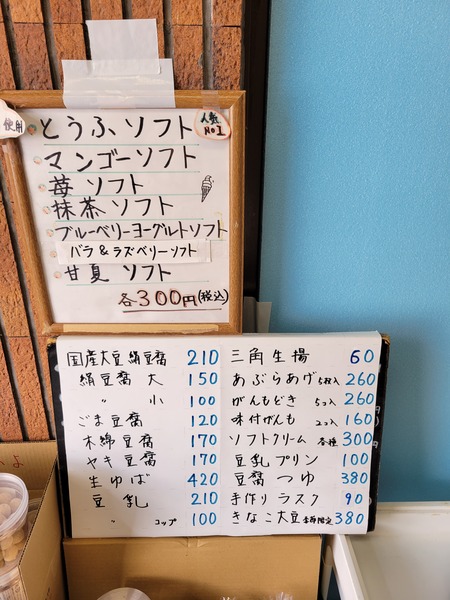 使用
とうふソフト
人気
No.1
マンゴーソフト
苺 ソフト
抹茶 ソフト
ブルーベリーヨーグルトソフト
バラ & ラズベリーソフト
甘夏 ソフト
各300円(税込)
国産大豆絹豆腐 210
絹豆腐 大 150
〃 小 100
ごま豆腐 120
木綿豆腐 170
ヤキ豆腐 170
生ゆば 420
豆乳 210
〃 コップ 100
三角生揚 60
あぶらあげ 5枚入 260
がんもどき 5コ入 260
味付がんも 2コ入 160
ソフトクリーム 各種 300
豆乳プリン 100
豆腐つゆ 380
手作りラスク 90
きなこ大豆 季節限定 380